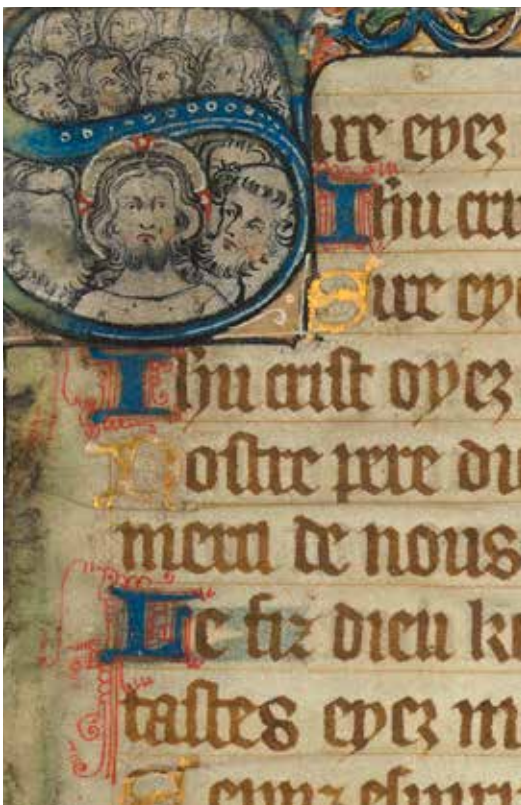 Sire eyez
Ihu cri
Sire eye
Ihu crist oyez
Nostre pere du
merci de nous
Le fiz dieu k
tastes eyez m